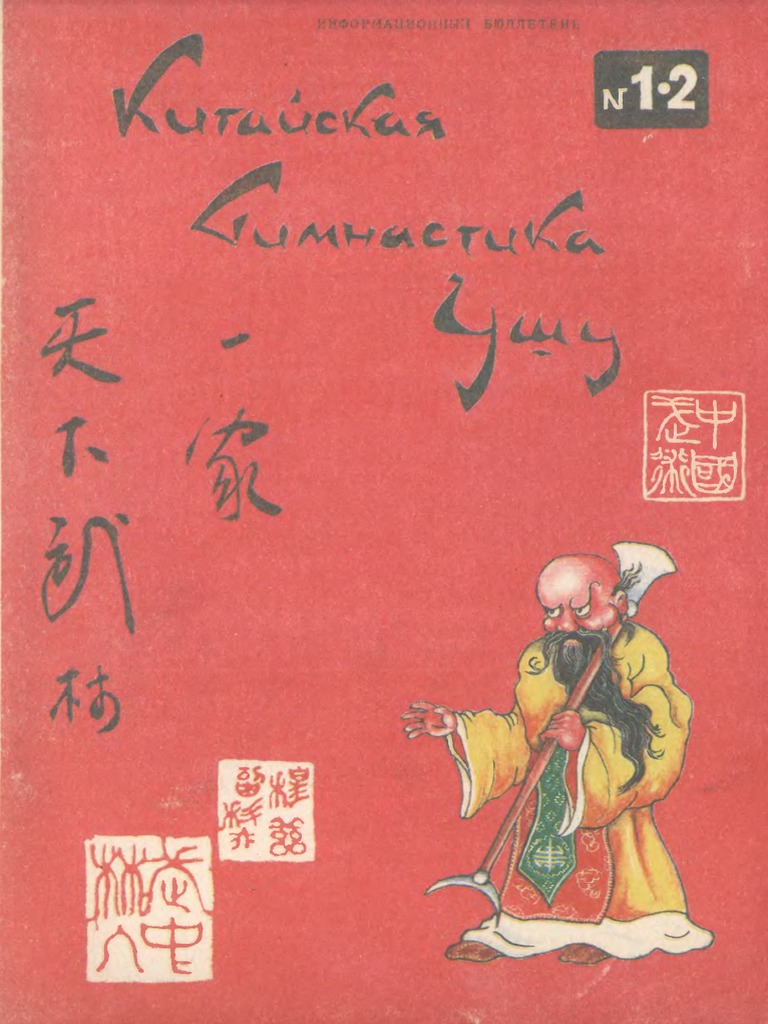 ИНФОРМАЦИОННЫЙ БЮЛЛЕТЕНЬ
N 1·2
Китайская
Гимнастика
Ушу
天下武林
一家
中國武術
武林中人